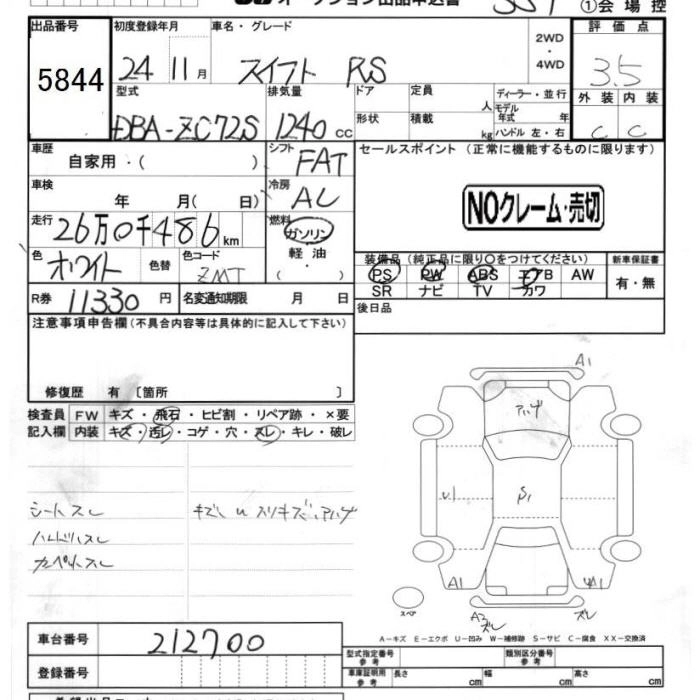 ①会場控
出品番号
5844
初度登録年月
24 11 月
車名・グレード
スイフト RS
2WD
・
4WD
評価点
3.5
外装 内装
C C
型式
DBA-ZC72S
排気量
1240 cc
ドア
形状
定員
人
積載
kg
ディーラー・並行
モデル
年式 年
ハンドル 左・右
車歴
自家用・( )
シフト
FAT
セールスポイント (正常に機能するものに限ります)
車検
年 月( 日)
冷房
AC
NOクレーム・売切
走行
26万0千486 km
燃料
ガソリン
軽油
・
( )
色
ホワイト
色替
色コード
ZMT
装備品 (純正品に限り○をつけてください)
PS PW ABS エアB AW
SR ナビ TV カワ
新車保証書
有・無
R券 11330 円
名変通知期限 月 日
後日品
注意事項申告欄(不具合内容等は具体的に記入して下さい)
修復歴 有 〔箇所 〕
検査員
記入欄
FW キズ・飛石・ヒビ割・リペア跡・×要
内装 キズ・汚レ・コゲ・穴・スレ・キレ・破レ
シートスレ
ハンドルスレ
カーペットスレ
A1
A1
スペア
スレ
スレ
A-キズ E-エクボ U-凹み W-補修跡 S-サビ C-腐食 XX-交換済
車台番号
212700
登録番号
型式指定番号
参考
類別区分番号
参考
車庫証明用
参考
長さ cm
幅 cm
高さ cm